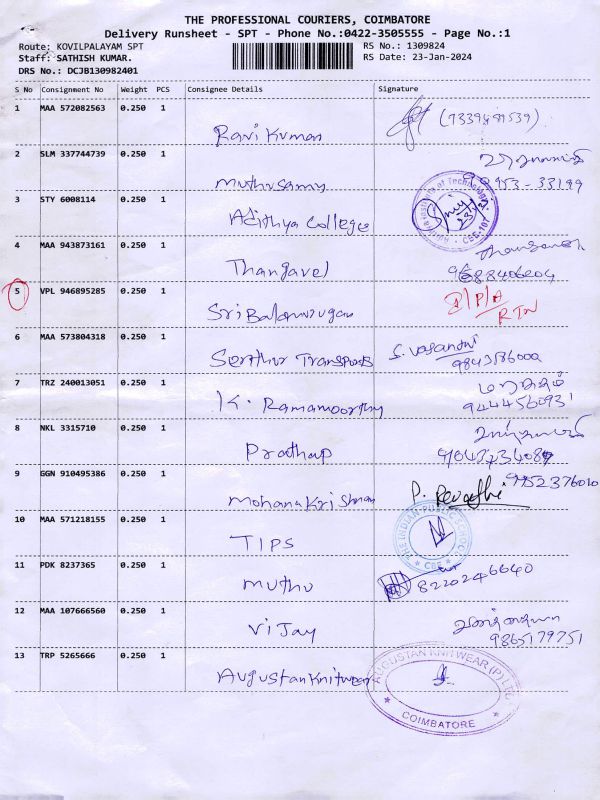 THE PROFESSIONAL COURIERS, COIMBATORE
Delivery Runsheet - SPT - Phone No.:0422-3505555 - Page No.:1
Route: KOVILPALAYAM SPT RS No.: 1309824
Staff: SATHISH KUMAR. RS Date: 23-Jan-2024
DRS No.: DCJB130982401
S No Consignment No Weight PCS Consignee Details Signature
1 MAA 572082563 0.250 1
Ravi Kuman
2 SLM 337744739 0.250 1
Muthusamy
3 STY 6008114 0.250 1
Adithya College
4 MAA 943873161 0.250 1
Thangavel
5 VPL 946895285 0.250 1
Sri Balamurugan
RTN
6 MAA 573804318 0.250 1
Transports S. Vasanthi
7 TRZ 240013051 0.250 1
K. Ramamoorthy
8 NKL 3315710 0.250 1
Prathap
9 GGN 910495386 0.250 1
Mohana Krishnan P. Revathi 9952376010
10 MAA 571218155 0.250 1
TIPS THE INDIAN PUBLIC SCHOOL CBE
11 PDK 8237365 0.250 1
Muthu 8220246640
12 MAA 107666560 0.250 1
Vijay 9865179751
13 TRP 5265666 0.250 1
Augustan Knitwear AUGUSTAN KNITWEAR (P) LTD
COIMBATORE